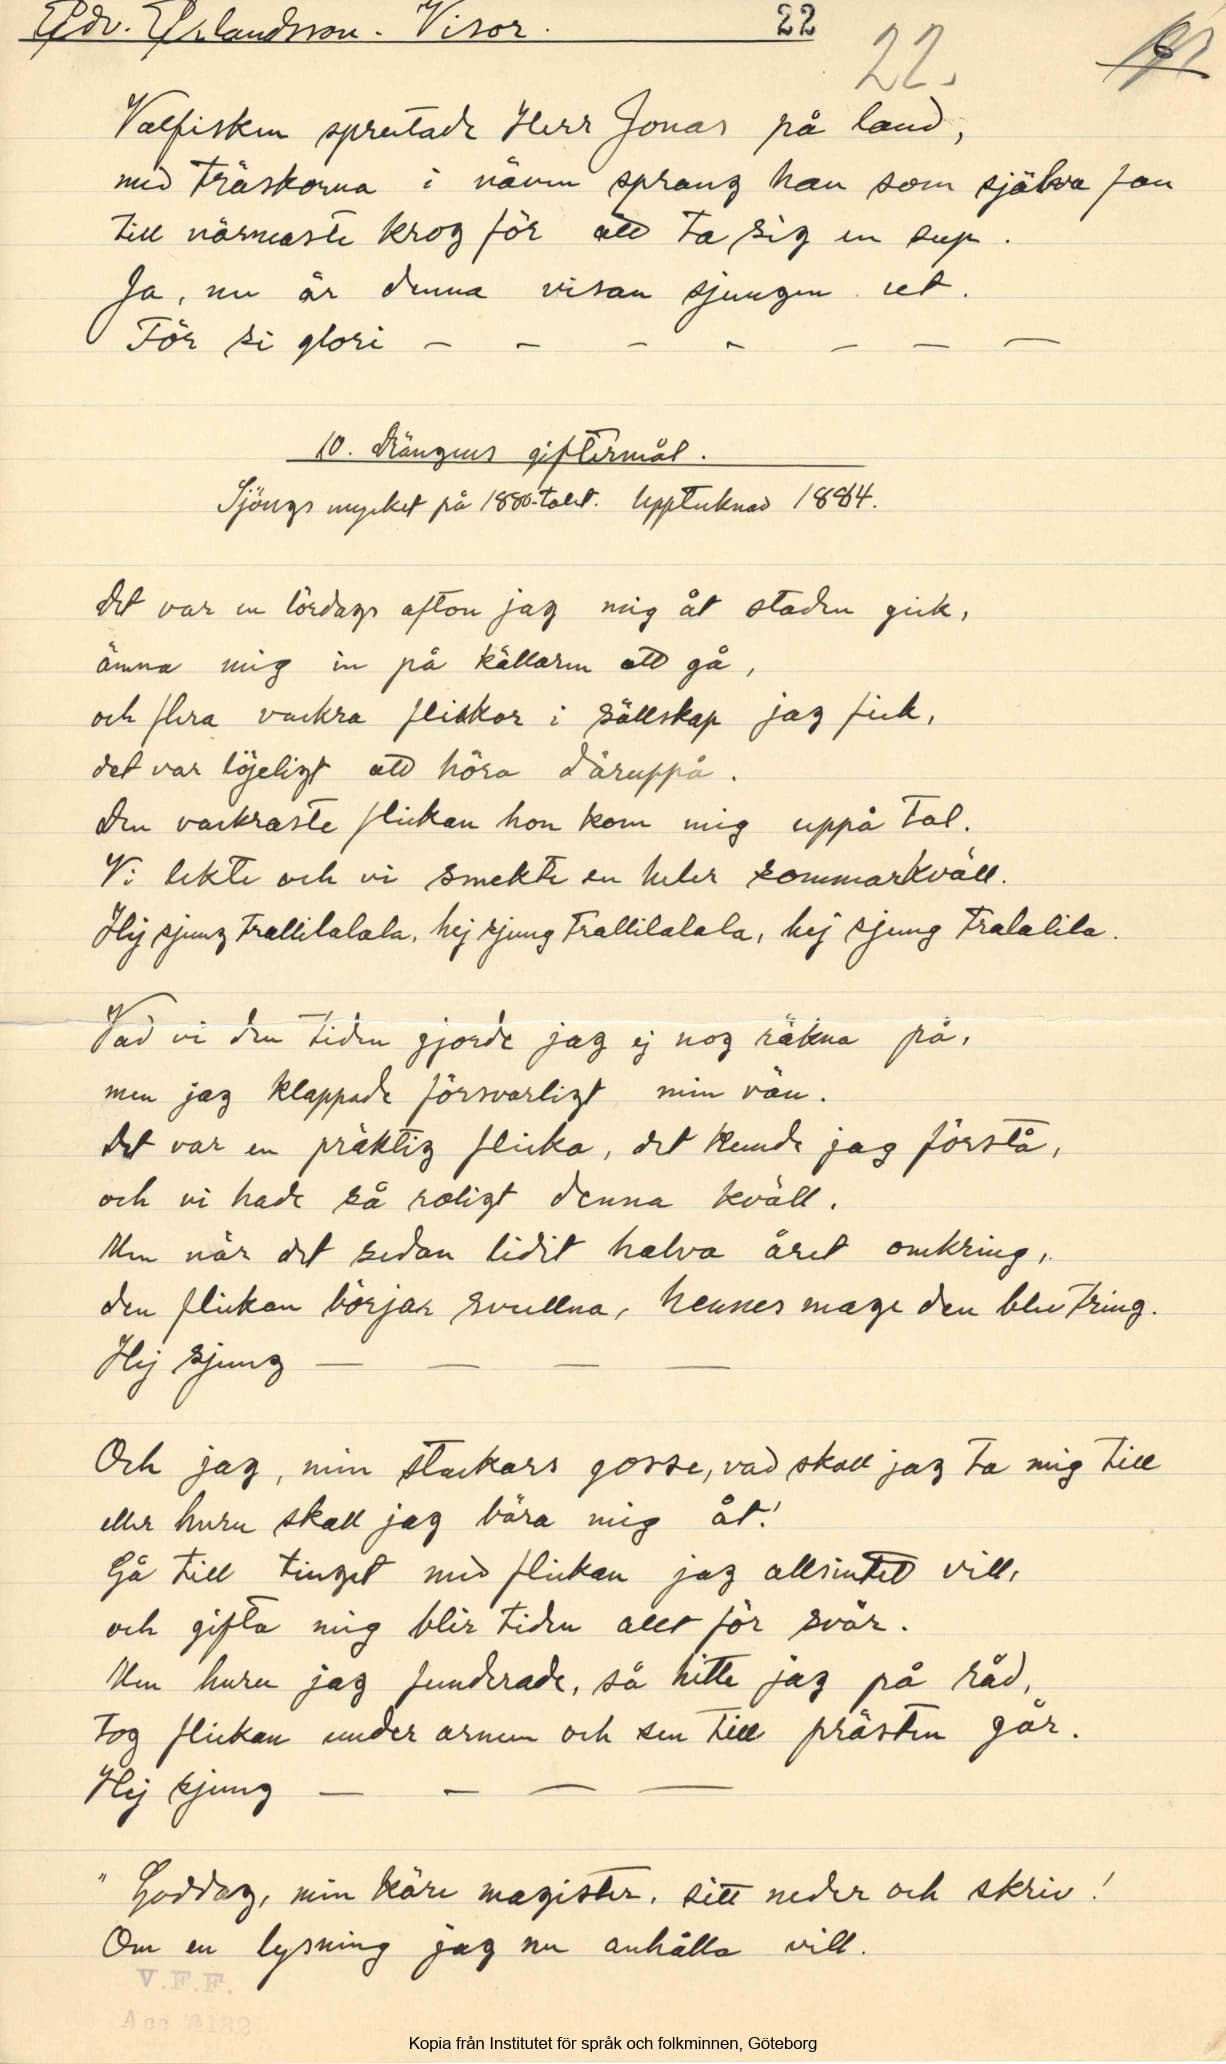 Edv. Erlandsson. Visor. 22
22.
Valfisken sprutade Herr Jonas på land,
med träskorna i näven sprang han som själva fan
till närmaste krog för att ta sig en sup.
Ja, nu är denna visan sjungen ut.
För si glori – – – – – – –
10. Drängens giftermål.
Sjöngs mycket på 1880-talet. Upptecknad 1884.
Det var en lördags afton jag mig åt staden gick,
ämna mig in på källaren att gå,
och flera vackra flickor i sällskap jag fick,
det var löjeligt att höra däruppå.
Den vackraste flickan hon kom mig uppå tal.
Vi lekte och vi smekte en heler sommarkväll.
Hej sjung trallilalala, hej sjung trallilalala, hej sjung tralalila.
Vad vi den tiden gjorde jag ej nog räkna på,
men jag klappade försvarligt min vän.
Det var en präktig flicka, det kunde jag förstå,
och vi hade så roligt denna kväll.
Men när det sedan lidit halva året omkring,
den flickan börjar svullna, hennes mage den blev tring.
Hej sjung – – – –
Och jag, min stackars gosse, vad skall jag ta mig till
eller huru skall jag bära mig åt!
Gå till tinget med flickan jag allsintet vill,
och gifta mig blir tiden allt för svår.
Men huru jag funderade, så hitte jag på råd,
tog flickan under armen och sen till prästen går.
Hej sjung – – – –
"Goddag, min käre magister, sitt neder och skriv!
Om en lysning jag nu anhålla vill.
V.F.F.
Kopia från Institutet för språk och folkminnen, Göteborg